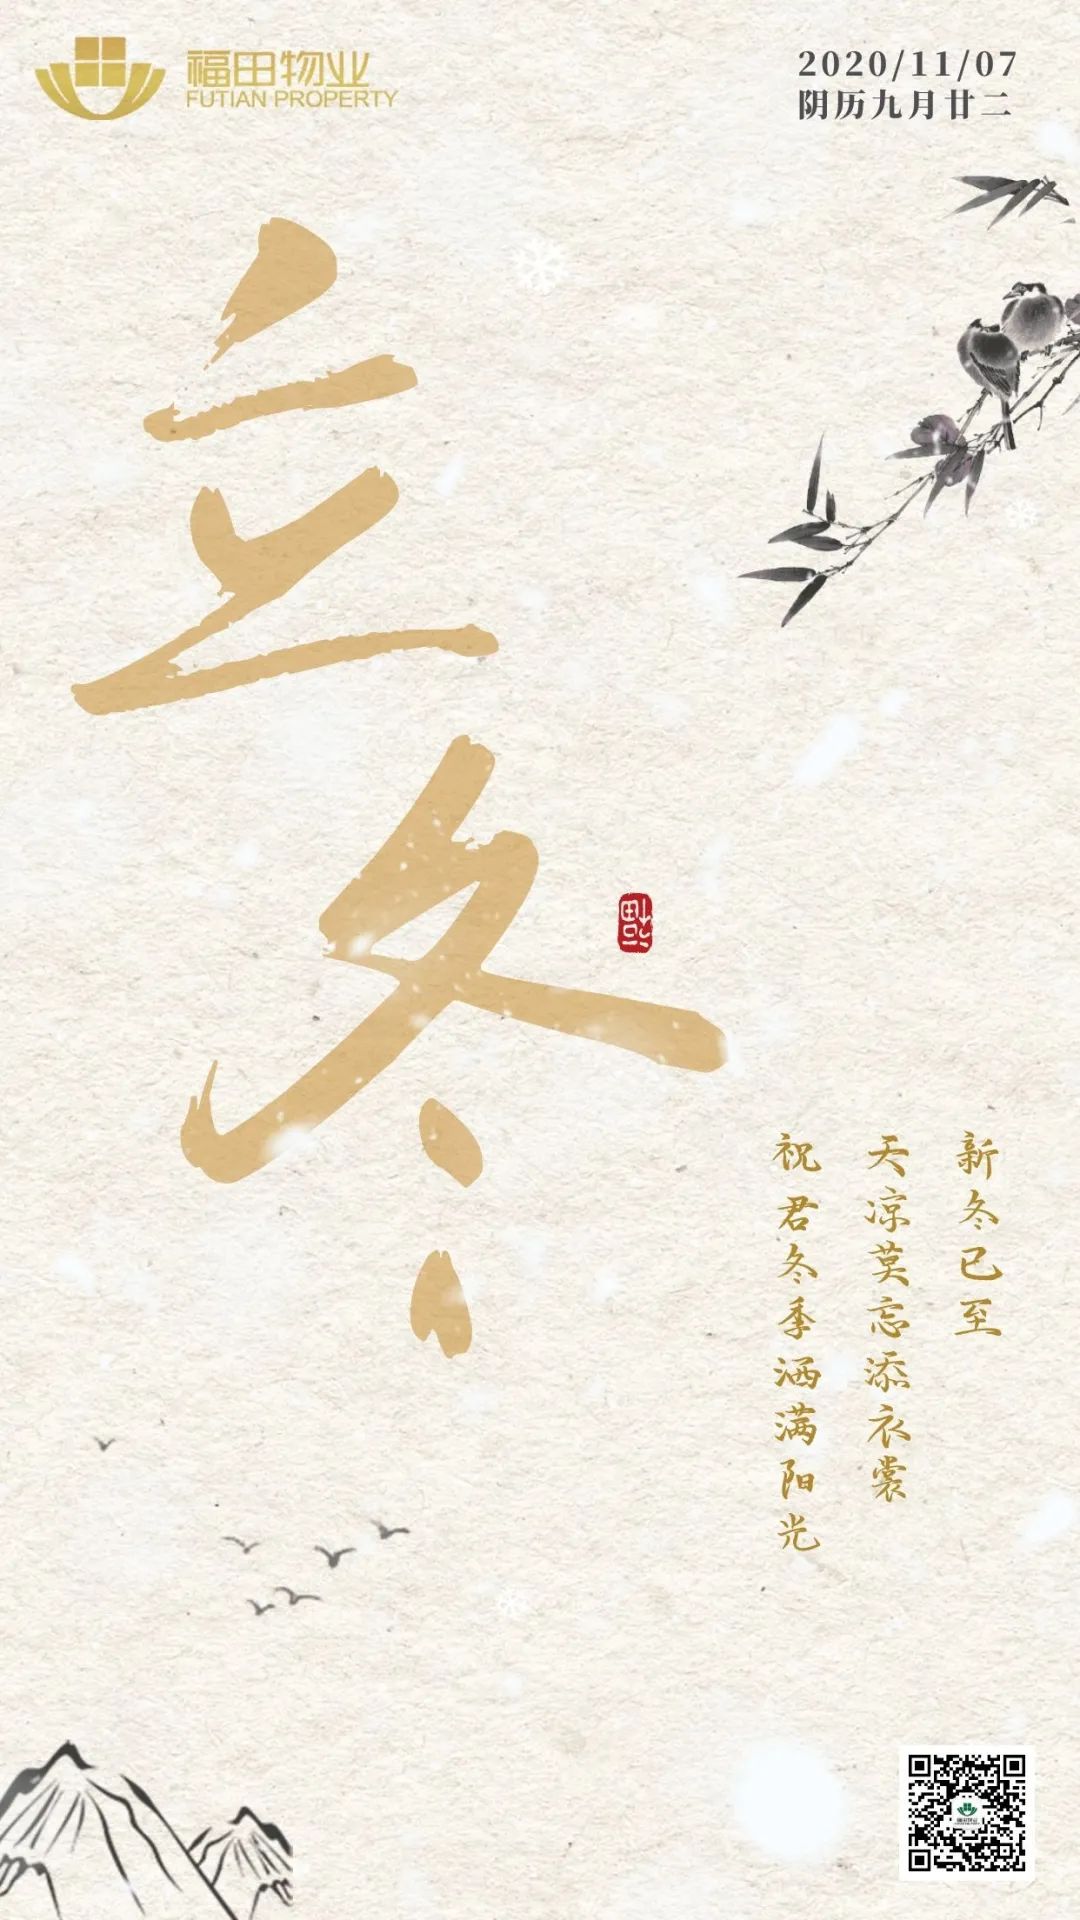 福田物业
FUTIAN PROPERTY
2020/11/07
阴历九月廿二
立冬
新冬已至
天凉莫忘添衣裳
祝君冬季洒满阳光